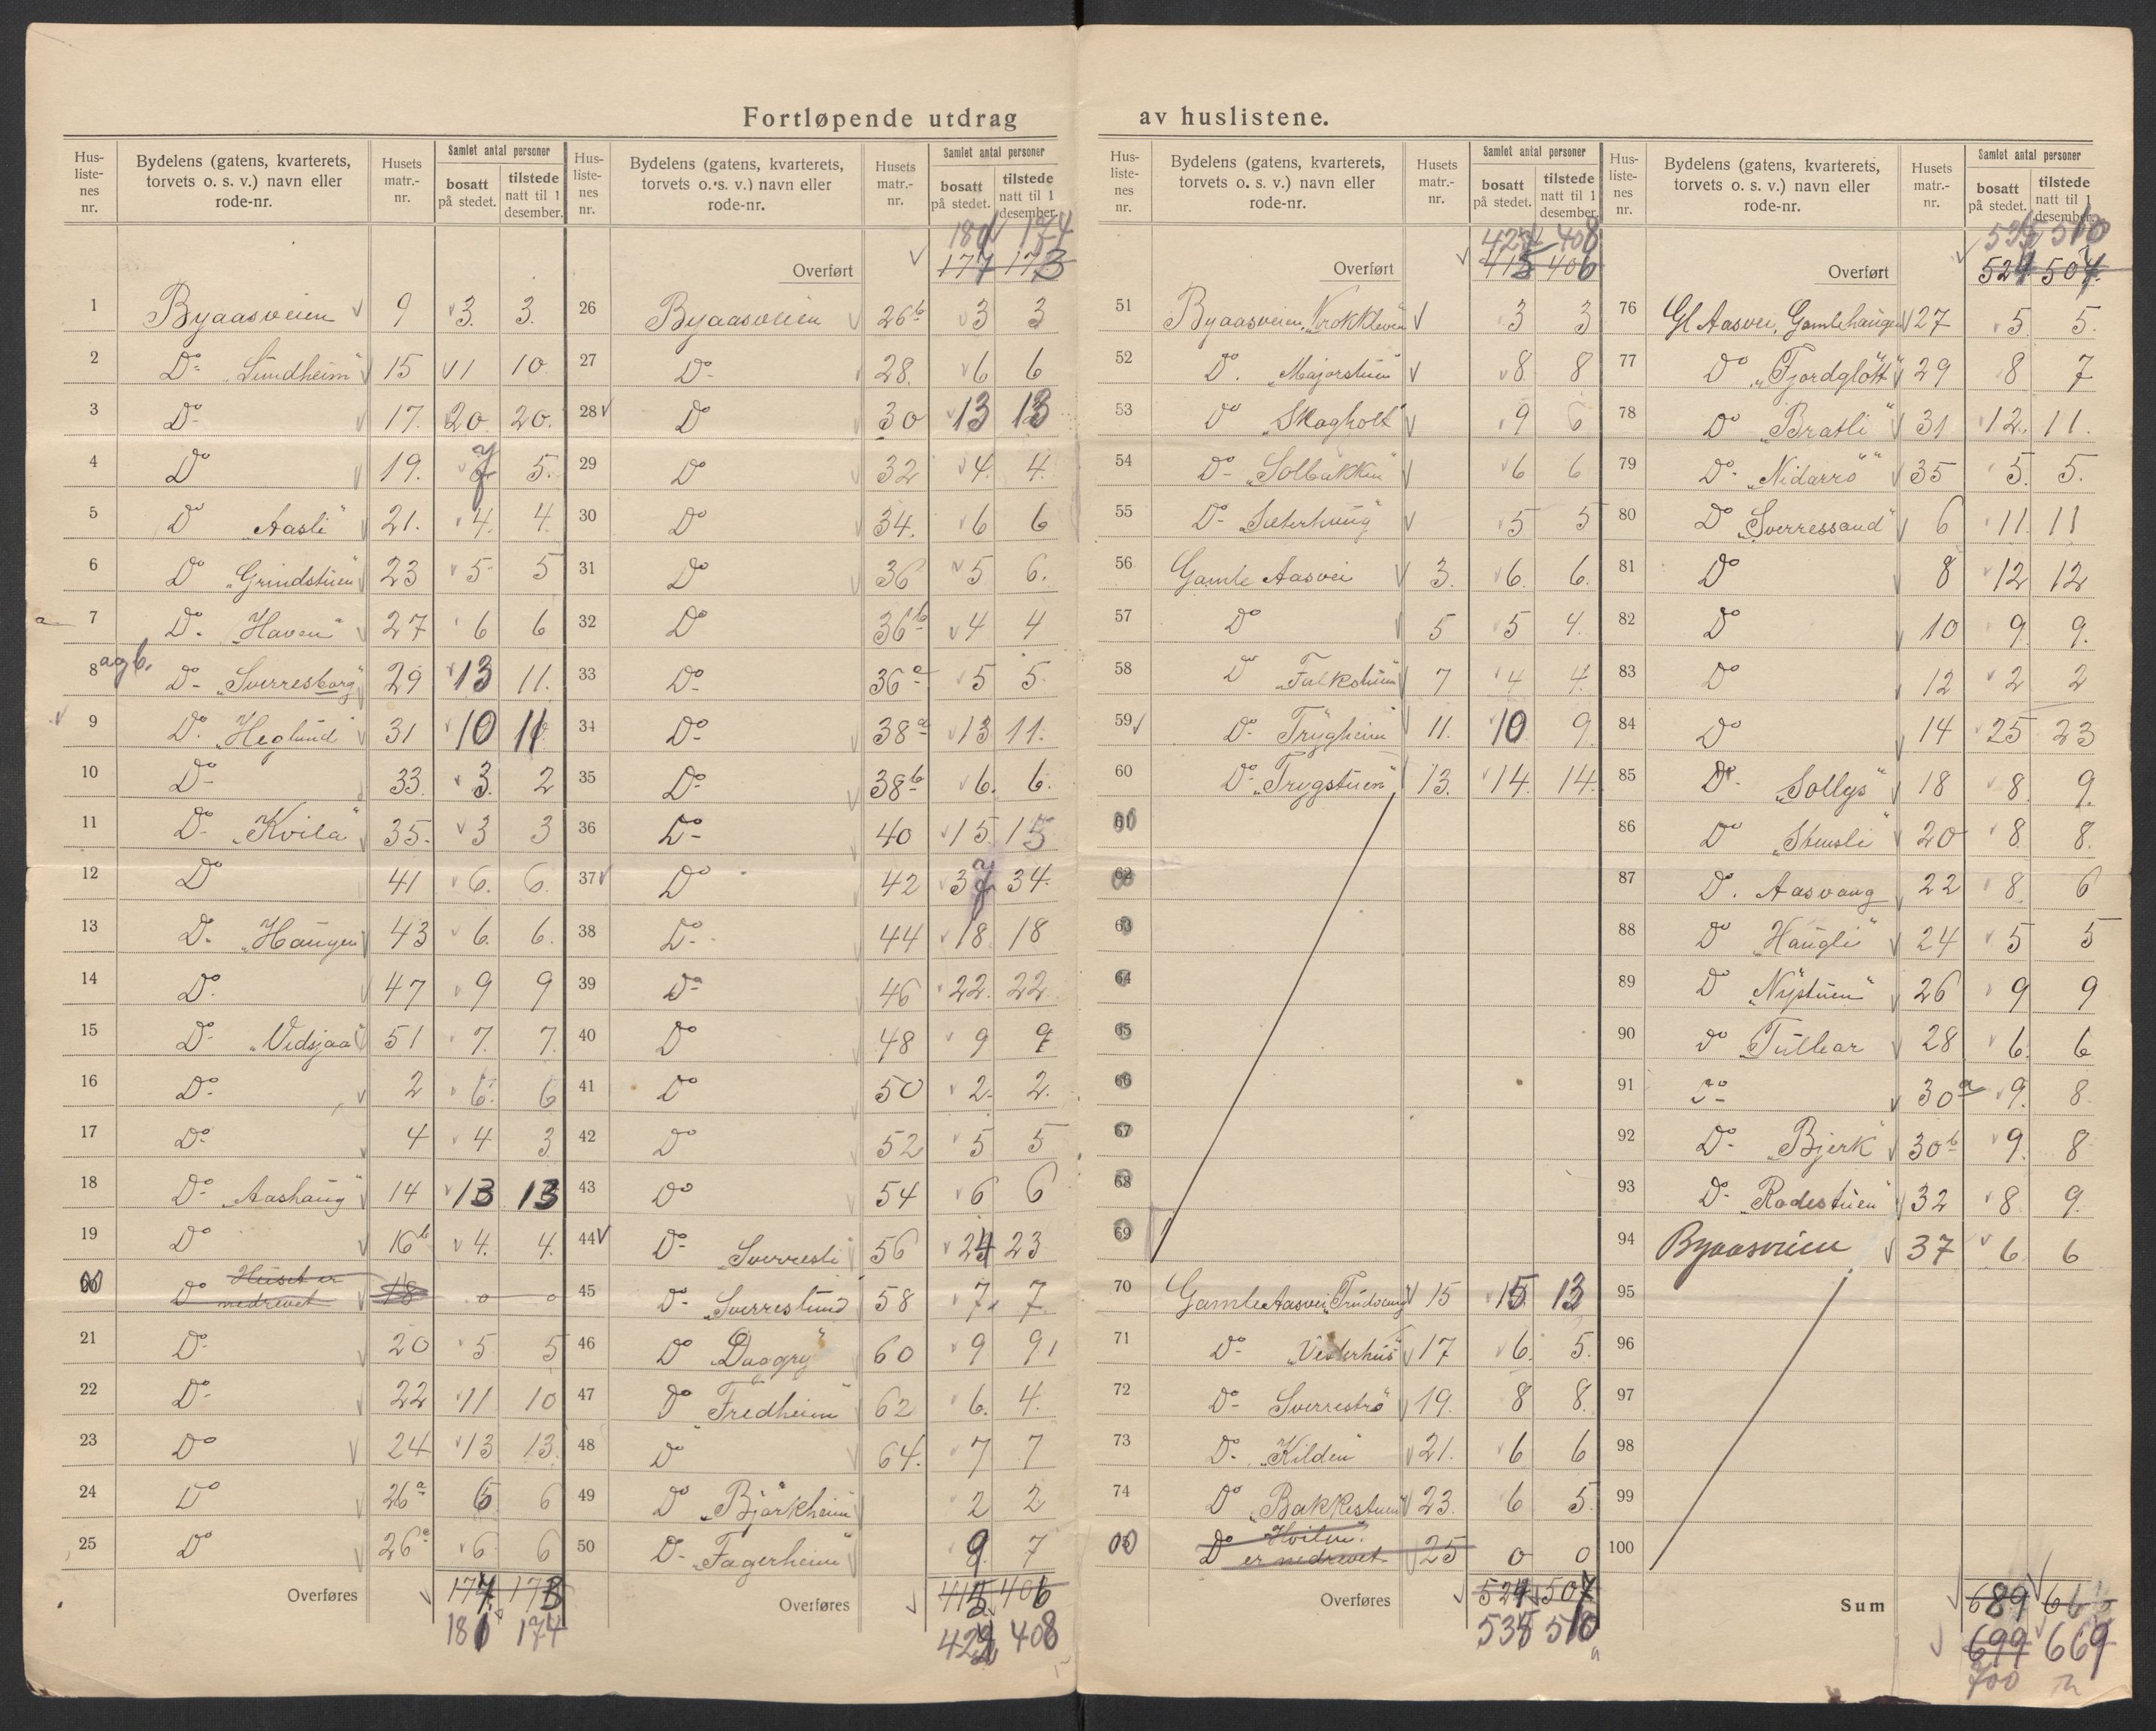 Fortløpende utdrag av huslistene.
Hus-liste-nes nr. | Bydelens (gatens, kvarterets, torvets o. s. v.) navn eller rode-nr. | Husets matr.-nr. | Samlet antal personer: bosatt på stedet. | tilstede natt til 1 desember.
1 Byaasveien 9 3. 3.
2 Do- „Sundheim" 15 11 10
3 Do- 17. 20. 20.
4 Do 19. 7 5.
5 Do „Aasli" 21. 4. 4.
6 Do „Grindstuen" 23 5 5
7 Do. „Haven" 27 6 6
8 Do- „Sverresborg" 29 13 11.
9 Do. „Heglund" 31 10 11
10 Do- 33. 3. 2
11 Do- „Kvila" 35. 3 3
12 Do 41 6. 6.
13 Do. „Haugen" 43 6. 6.
14 Do. 47 9 9
15 Do- „Vidsjaa" 51 7. 7.
16 Do. 2 6. 6
17 Do- 4 4 3
18 Do- Aashaug" 14 13 13
19 Do 16b 4. 4.
Do Huset er nedrevet 18 0 0
21 Do- 20 5 5
22 Do- 22 11 10
23 Do 24 13 13.
24 Do 26a 6 6
25 Do 26c 6 6
Overføres 177 173
181 174
181 174
Overført 177 173
26 Byaasveien 26b 3 3
27 Do- 28. 6 6
28 Do 30 13 13
29 Do 32 4. 4.
30 Do 34. 6 6
31 Do 36 5 6.
32 Do 36b 4 4
33 Do- 36a 5 5.
34 Do- 38a 13 11.
35 Do- 38b 6. 6.
36 Do- 40 15 15
37 Do 42 37 34.
38 Do- 44 18 18
39 Do- 46 22. 22
40 Do 48 9 9
41 Do 50 2. 2.
42 Do 52 5 5
43 Do 54 6 6
44 Do- Sverresli" 56 24 23
45 Do- „Sverreslund 58 7 7
46 Do „Daggry" 60 9 9
47 Do „Fredheim" 62 6. 4.
48 Do 64. 7 7
49 Do „Bjørkheim" 2 2
50 Do- „Fagerheim" 9 7
Overføres 415 406
408
408
Overført 415 406
51 Byaasveien, „Krokkleven" 3 3
52 Do. „Majorstuen" 8 8
53 Do „Skogholt" 9 6
54 Do- „Solbakken" 6 6
55 Do- „Sæterhaug" 5 5
56 Gamle Aasvei 3. 6. 6.
57 Do 5 5 4.
58 Do „Falkstuen" 7 4 4.
59 Do- Trygheim" 11. 10 9.
60 Do- „Trygstuen" 13. 14. 14.
61
62
63
64
65
66
67
68
69
70 Gamle Aasvei, „Trudvang" 15 15 13
71 Do- „Vesterhus" 17 6. 5.
72 Do- Sverrestrø" 19. 8 8.
73 Do- „Kilden" 21. 6 6
74 Do „Bakkestuen" 23. 6 5.
Do „Hvilen". er nedrevet 25 0 0
Overføres 524 507
535 510
535 510
Overført 524 507
76 Gl Aasvei, Gamlehaugen 27 5. 5.
77 Do „Fjordgløtt" 29 8 7
78 Do „Bratli" 31 12. 11.
79 Do- „Nidarrø" 35 5. 5.
80 Do „Sverressand" 6 11. 11
81 Do 8 12 12
82 Do 10 9. 9.
83 Do 12 2 2
84 Do 14 25 23
85 Do- „Sollys" 18 8. 9.
86 Do „Stensli" 20 8 8.
87 Do. Aasvang 22 8. 6
88 Do „Haugli" 24 5 5
89 Do „Nystuen" 26 9 9
90 Do 28 6. 6
91 Do- 30a 9. 8.
92 Do- „Bjerk" 30b 9. 8
93 Do- „Rodestuen" 32 8 9.
94 Byaasveien 37 6 6
95
96
97
98
99
100
Sum 689 666
699 669
700